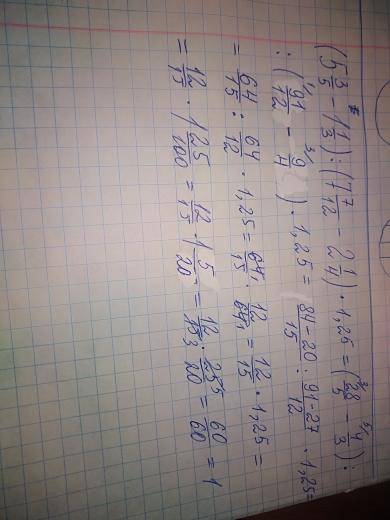 (5 3/5 - 1 1/3) : (7 7/12 - 2 1/4) · 1,25 = (28/5 - 4/3) :
: (91/12 - 9/4) · 1,25 = 84-20/15 : 91-27/12 · 1,25 =
= 64/15 : 64/12 · 1,25 = 64/15 · 12/64 = 12/15 · 1,25 =
= 12/15 · 1 25/100 = 12/15 · 1 5/20 = 12/15 · 25/20 = 60/60 = 1